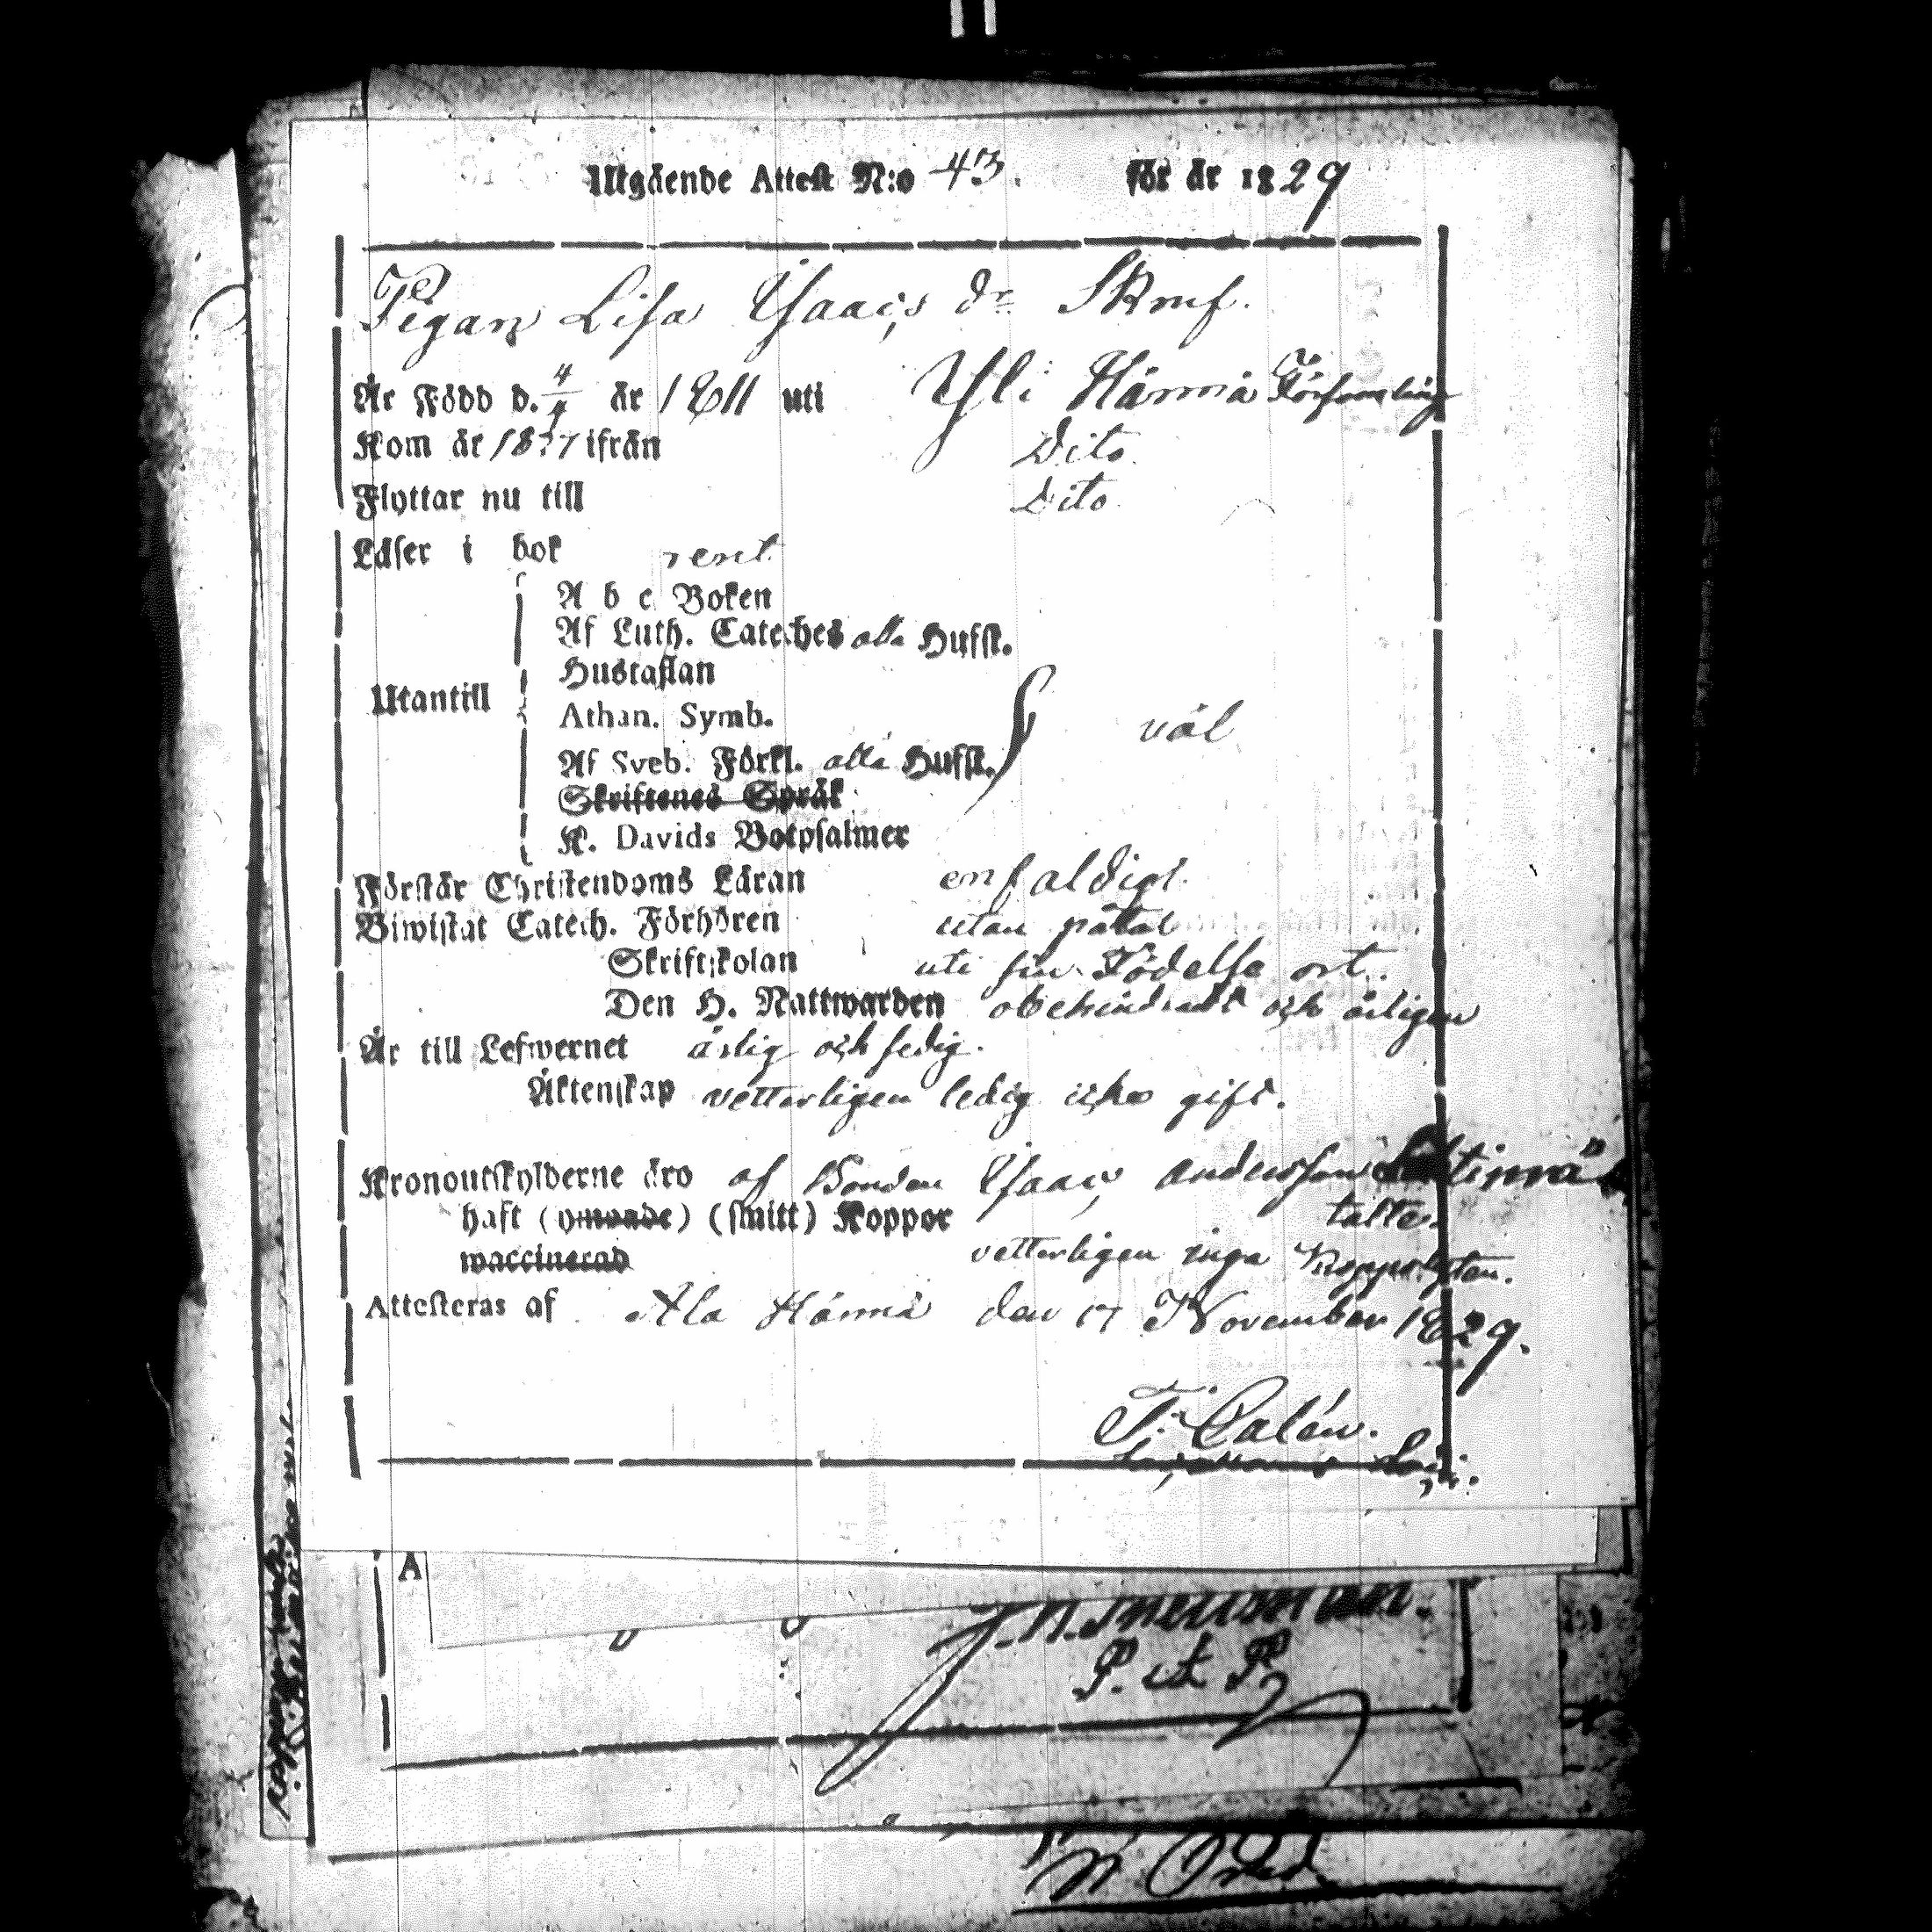 Utgående Attest N:o 43. för år 1829
Pigan Lisa Isaacs dr
Är Född d. 4/4 år 1811 uti Yli Härmä Församling
Kom år 18 7 ifrån Dito
Flyttar nu till Dito
Läser i bok rent
A b c Boken
Af Luth. Cateches alla Hufst.
Hustaflan
Utantill
Athan. Symb.
väl
Af Sveb. Förkl. alla Hufst.
Skriftenes Språk
K. Davids Botpsalmer
Förstår Christendoms Läran enfaldigt.
Biwistat Catech. Förhören utan påtal
Skriftskolan uti sin Födelse ort.
Den H. Nattwarden obehindradt och årligen
Är till Lefwernet ärlig och sedig.
Äktenskap vetterligen ledig icke gift.
Kronoutskylderne äro af Bonden Isaac Andersson
haft (ymoade) (smitt) Koppor
waccinerad vetterligen inga
Attesteras af Ala Härmä den 17 November 1829.
A
P. et P.